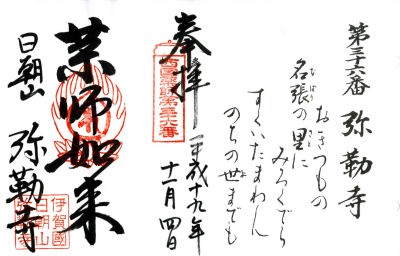 第三十六番 弥勒寺
おきつもの
名張の里に
なばり
さと
みろくでら
すくいたまわん
のちの世までも
よ
奉拝
西国薬師第三十六番
平成十九年
十一月四日
薬師如来
日朝山 弥勒寺
伊賀國
日朝山
弥勒寺